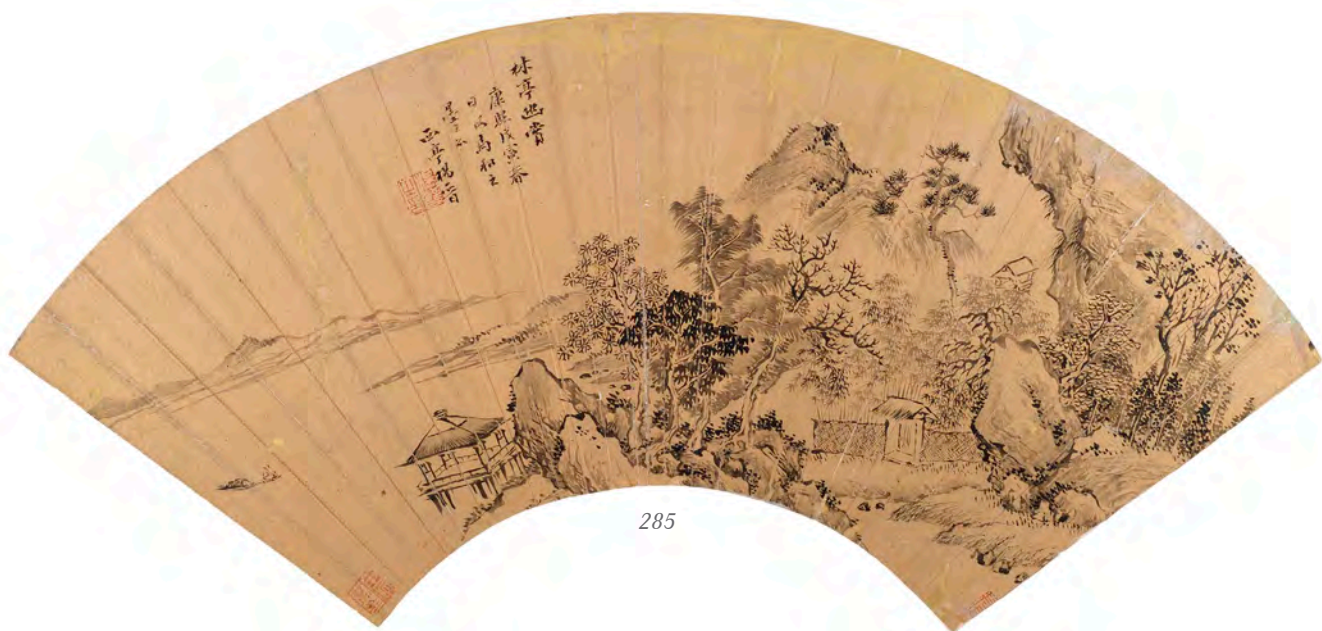 林亭幽賞
康熙戊寅春
日仿馬和之
西亭楊晉
285